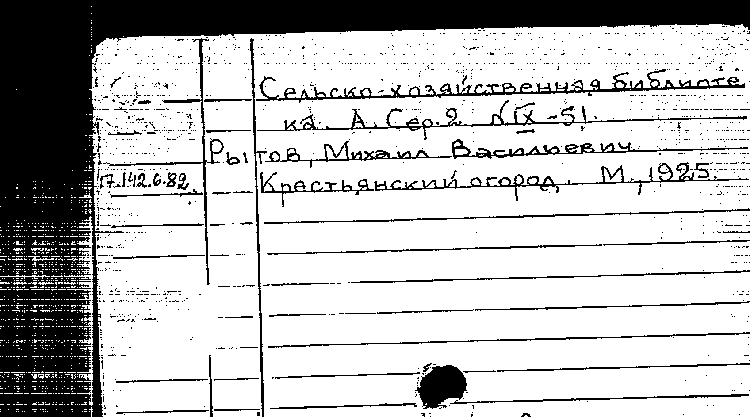 Сельско-хозяйственная библиоте
ка. А. Сер. 2 № IX-51.
Рытов, Михаил Васильевич
17.142.6.82. Крестьянский огород. М., 1925.